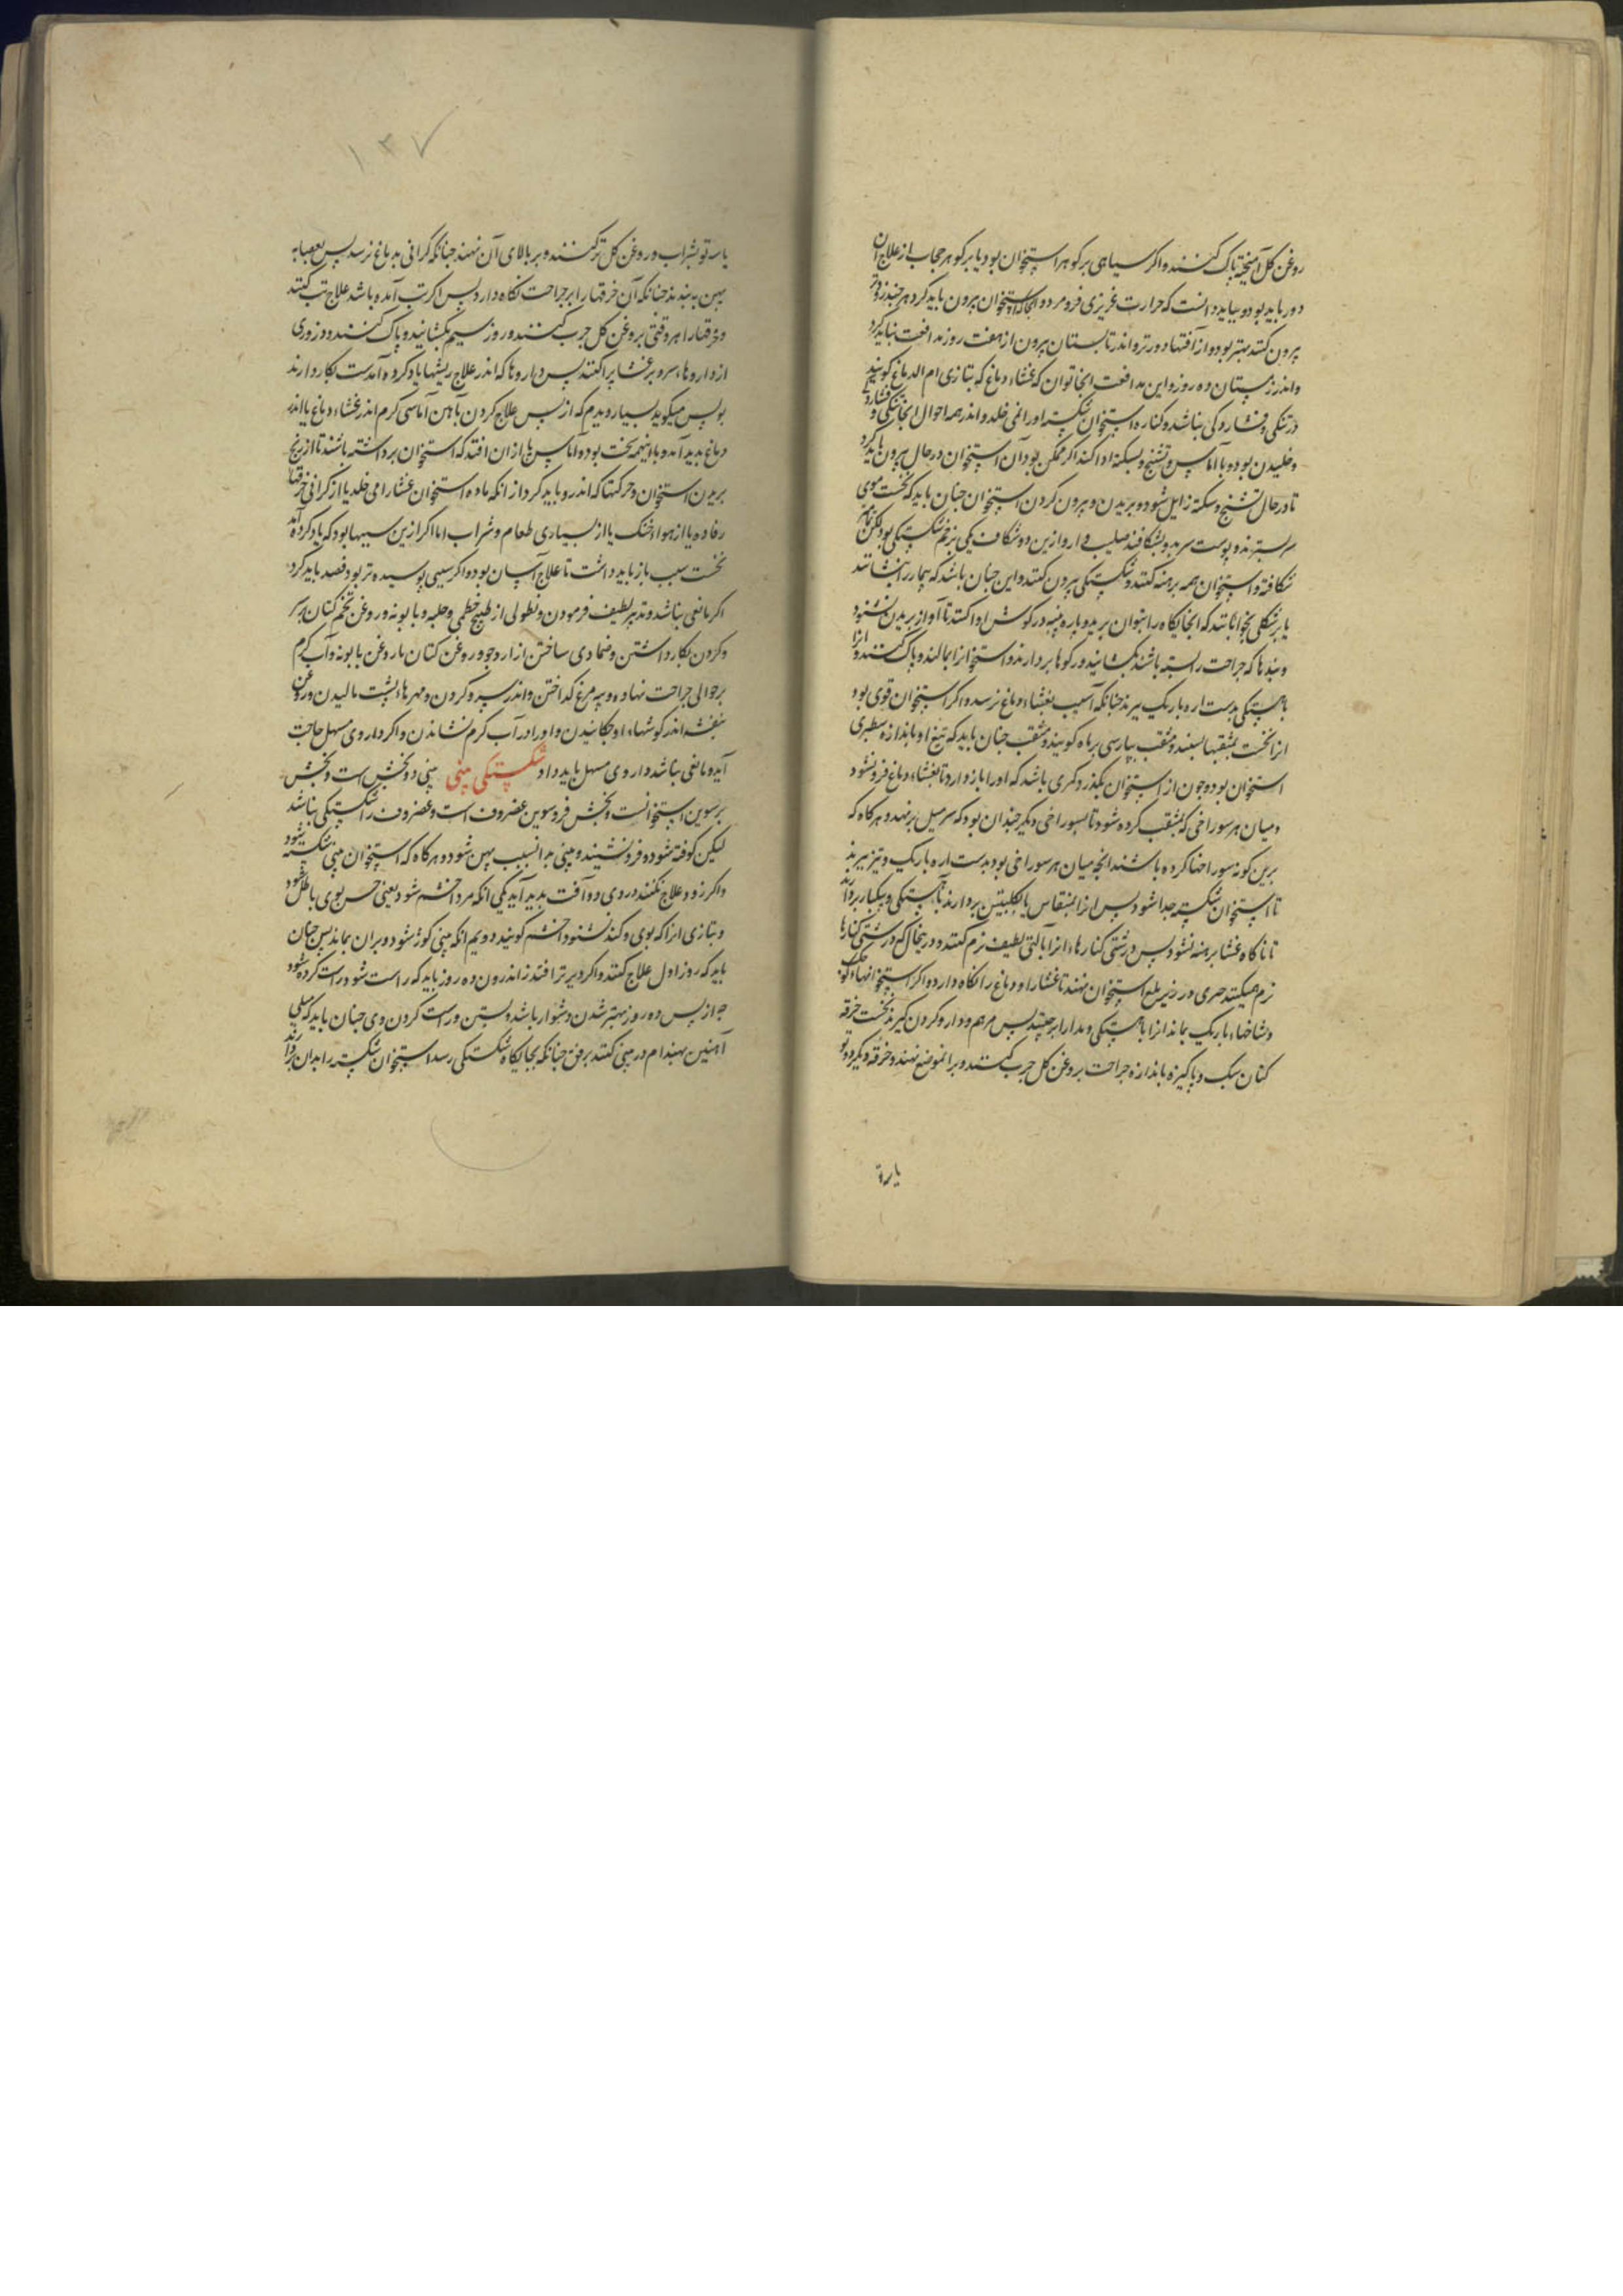 روغن کل آمیخته پاک کنند و اکر سیاهی بر کوهر استخوان بود یا بر کوهر حجاب از علاج آن
دور باید بود و بباید دانست که حرارت غریزی فرو مرد و انجا که استخوان بیرون باید کرد هر چند زودتر
بیرون کنند بهتر بود و از آفتها دورتر و اندر تابستان بیرون از هفت روز مدافعت نباید کرد
و اندر زمستان ده روز و این مدافعت انجا توان که غشاء دماغ که بتازی ام الدماغ کویند
در تنکی و فشارد کی نباشد و کناره استخوان شکسته اورا نمی خلد و اندر همه احوال انجا تنکی و فشاردن
و خلیدن بود و با آماس و تشنج و سکته ادا کند اکر ممکن بود آن استخوان در حال بیرون باید کرد
تا در حال تشنج و سکته زایل شود و بریدن و بیرون کردن استخوان چنان باید که نخست موی
سر بسترند و پوست سر بدو بشکافند صلیب وار و ازین دو شکاف یکی بزخم شکستکی بود لکن تمامتر
شکافته و استخوان همه برهنه کنند و شکستکی بیرون کنند و این چنان باشد که بیمار را بنشانند
یا بر شکلی بخوابانند که انجایکاه را بتوان برید و پاره پنبه در کوش او اکنند تا آواز بریدن نشنود
و بندها که جراحت را بسته باشند بکشایند و رکوها بردارند و استخوانرا بمالند و پاک کنند و انرا
باهستکی بدست اره باریک ببرند چنانکه آسیب بغشاء دماغ نرسد و اکر استخوان قوی بود
انرا نخست بمثقبها بسنبند و مثقب بپارسی برماه کویند و مثقب چنان باید که تیغ او باندازه سطبری
استخوان بود و چون از استخوان بکذرد کمری باشد که اورا باز دارد تا بغشاء دماغ فرو نشود
و میان هر سوراخی که بمثقب کرده شود تا بسوراخی دیکر چندان بود که سر میل بر نهد و هر کاه که
برین کونه سوراخها کرده باشند انچه میان هر سوراخی بود بدست اره باریک و تیز ببرند
تا استخوان شکسته جدا شود پس انرا بمنقاس یا کلبتین بردارند باهستکی و بیکبار بردارند
تا ناکاه غشا برهنه نشود پس درشتی کنارهاء انرا بآلتی لطیف نرم کنند و در انحال که درشتی کنارها
نرم میکنند چیزی در زیر بلع استخوان نهند تا غشاء او و دماغ را نکاه دارد و اکر استخوانها کوچک
و شاخهاء باریک بماند انرا باهستکی و مدارا برچینند پس مرهم و دارو کردن کیرند نخست خرقه
کتان سبک و پاکیزه باندازه جراحت بروغن کل چرب کنند و بر انموضع نهند و خرقه دیکر دو تو
یا سه تو
١٣٧
یا سه تو بشراب و روغن کل تر کنند و بر بالای آن نهند چنانکه کرانی بدماغ نرسد پس بعصابه
پهن ببندند چنانکه آن خرقها را بر جراحت نکاه دارد پس اکر تب آمده باشد علاج تب کنند
و خرقها را هر وقتی بروغن کل چرب کنند و روز سیم بکشایند و پاک کنند و ذروری
از داروهاء سرد بر غشا پراکنند پس داروها که اندر علاج ریشها یاد کرده آمدست بکار دارند
بولس میکوید بسیار دیدم که از پس علاج کردن بآهن آماسی کرم اندر غشاء دماغ یا اندر
دماغ پدید آمد و با اینهمه سخت بود و آماس ها از ان افتد که استخوان برداشته باشند تا از رنج
بریدن استخوان و حرکتها که اندر و باید کرد از انکه ماده استخوان غشا را می خلد یا از کرانی خرقها
رفاده یا از هواء خنک یا از بسیاری طعام و شراب اما اکر ازین سببها بود که یاد کرده آمد
نخست سبب باز باید داشت تا علاج آسان بود و اکر سببی پوسیده تر بود فصد باید کرد
اکر مانعی نباشد و تدبیر لطیف فرمودن و نطولی از طبیخ خطمی و حلبه و بابونه و روغن تخم کتان بر سر
و کردن بکار داشتن و ضمادی ساختن از ارد جو و روغن کتان با روغن بابونه و آب کرم
بر حوالی جراحت نهاده و پیه مرغ کداختن و اندر سر و کردن و مهرهاء پشت مالیدن و روغن
بنفشه اندر کوشهاء او چکانیدن و اورا در آب کرم نشاندن و اکر داروی مسهل حاجت
آید و مانعی نباشد داروی مسهل باید داد شکستکی بینی بینی دو بخش است و بخش
برسوین استخوانست و بخش فروسوین غضروف است و غضروف را شکستکی نباشد
لیکن کوفته شود و فرو نشیند و بینی بدانسبب پهن شود و هر کاه که استخوان بینی شکسته شود
و اکر زود علاج نکنند در وی دو آفت پدید آید یکی انکه مرد اخشم شود یعنی حس بوی باطل شود
و بتازی انرا که بوی و کند نشنود اخشم کویند و دویم انکه بینی کوژ شود و بر ان بماند پس چنان
باید که روز اول علاج کنند و اکر دیرتر افتد از اندرون ده روز باید که راست شود و راست کرده شود
چه از پس ده روز بهتر شدن دشوار باشد و بستن و راست کردن وی چنان باید که میلی
آهنین بهندام در بینی کنند برفق چنانکه بجایکاه شکستکی رسد استخوان شکسته را بدان بردارند